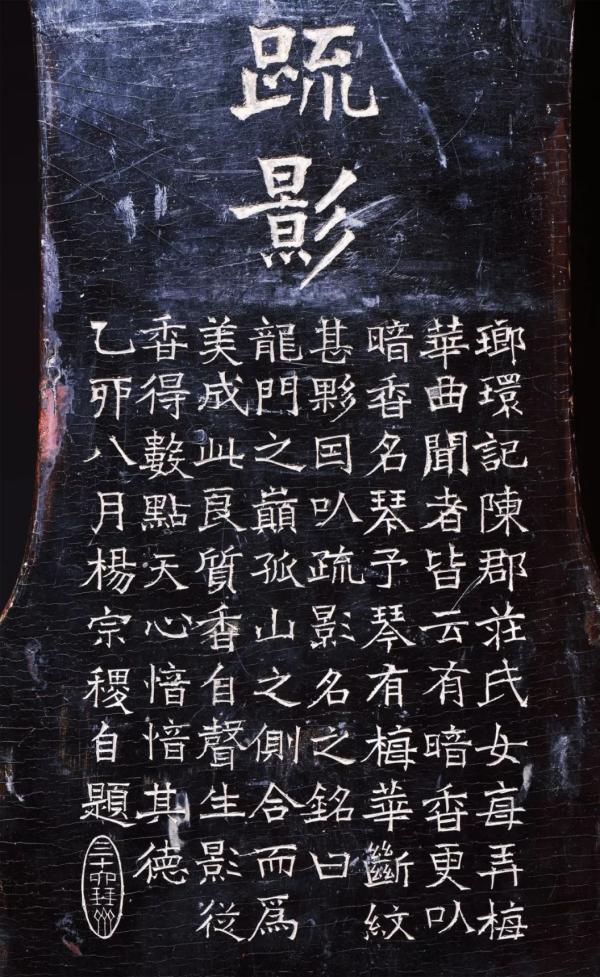 疏影
瑯環記陳郡荘氏女每弄梅
華曲聞者皆云有暗香更以
暗香名琴予琴有梅華斷紋
甚夥因以疏影名之銘曰
龍門之巔孤山之側合而爲
美成此良質香自聲生影從
香得數點天心愔愔其德
乙卯八月楊宗稷自題
三十六